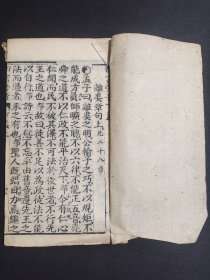 離婁章句上凡二十八章
孟子曰離婁之明公輸子之巧不以規矩不
能成方員師曠之聰不以六律不能正五音堯
舜之道不以仁政不能平治天下今有仁心
仁聞而民不被其澤不可法於後世者不行先
王之道也故曰徒善不足以為政徒法不能
以自行詩云不愆不忘率由舊章遵先王之
法而過者未之有也聖人既竭目力焉繼之